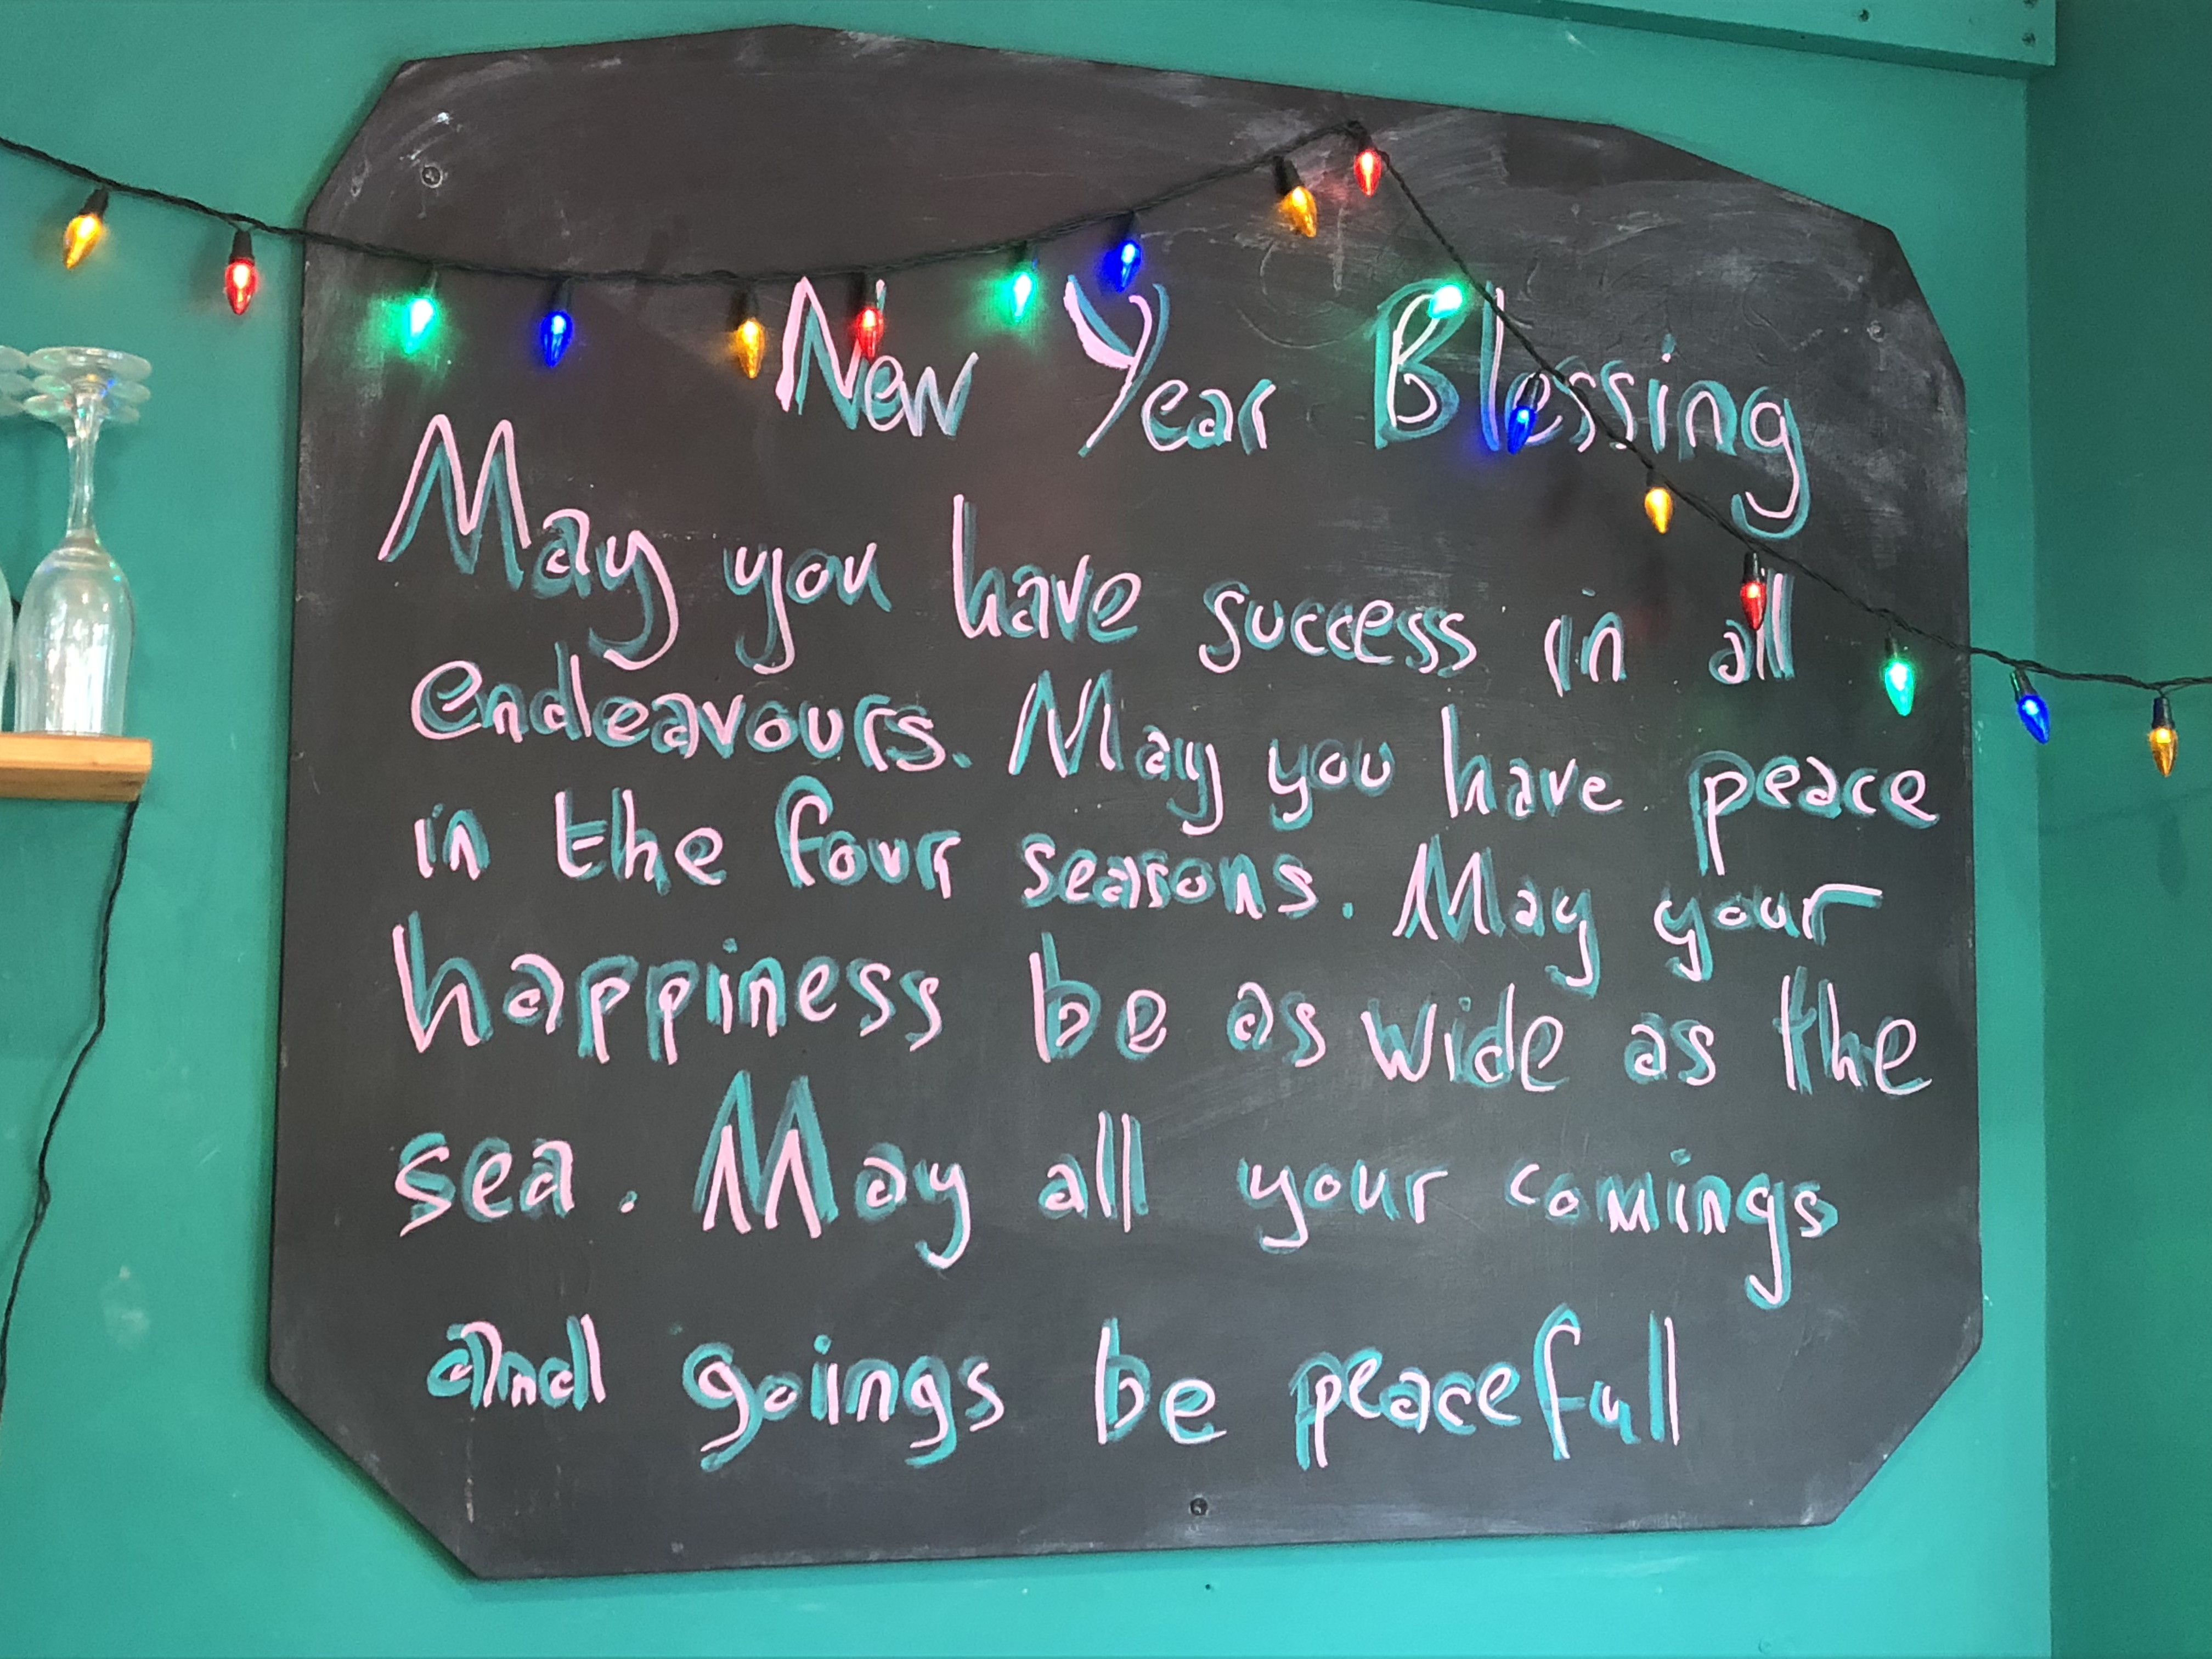 New Year Blessing
May you have success in all
endeavours. May you have peace
in the four seasons. May your
happiness be as wide as the
sea. May all your comings
and goings be peacefull